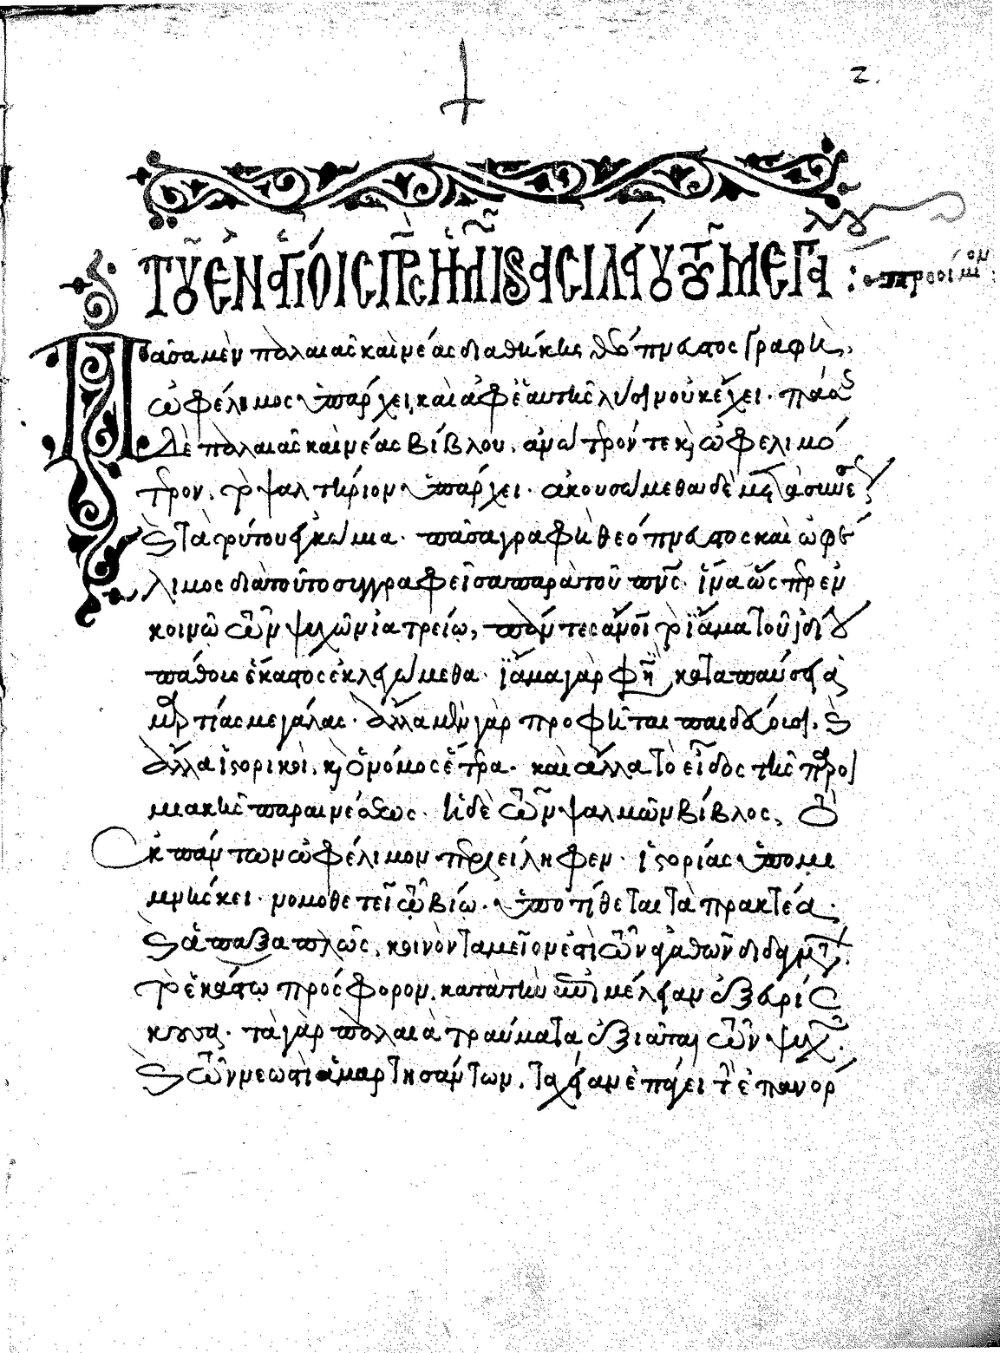 2.
τοῦ ἐν ἁγίοις πρς ἡμῶν βασιλείου τοῦ μεγα
λου
: προοίμιον :
Πᾶσα μὲν παλαιᾶς καὶ νέας διαθήκης θεόπνευστος γραφῆς,
ὠφέλιμος ὑπάρχει, καὶ
δὲ παλαιᾶς καὶ νέας βίβλου, ἀνωτερόν τε κ ὠφελιμό
τερον, τὸ ψαλτήριον ὑπάρχει. ἀκουσώμεθα δὲ
τὰ ἐγκώμια. πᾶσα γραφὴ θεόπνευστος καὶ ὠφέ
λιμος διὰ τοῦτο συγγραφεῖσα παρὰ τοῦ πνς. ἵνα ὥσπερ ἐν
κοινῷ τῶν ψυχῶν ἰατρείῳ, πάντες ἄνοι τὸ ἴαμα τοῦ ἰδίου
πάθους ἕκαστος ἐκλεγώμεθα. ἴαμα γάρ φη καταπαύσει
ἁμαρτίας μεγάλας. ἄλλα μὲν γὰρ προφῆται παιδεύουσι, κ
ἄλλα ἱστορικοὶ, κ ὁ νόμος ἕτερα. καὶ ἄλλα τὸ εἶδος τῆς παροι
μιακῆς παραινέσεως. ἡ δὲ τῶν ψαλμῶν βίβλος, τὸ
ἐκ πάντων ὠφέλιμον περιείληφεν. ἱστορίας ὑπομι
μνήσκει. νομοθετεῖ τῷ βίῳ. ὑποτίθεται τὰ πρακτέα.
κ ἁπαξαπλῶς, κοινὸν ταμεῖόν ἐστι τῶν ἀγαθῶν διδαγμάτ.
τὸ ἑκάστῳ πρόσφορον, κατὰ τὴν ἐπιμέλειαν ἐξευρίσ
κουσα. τὰ γὰρ παλαιὰ τραύματα ἐξιᾶται τῶν ψυχ.
κ τῶν νεωστὶ ἁμαρτησάντων, ταχεῖαν ἐπάγει τὴν ἐπανόρ